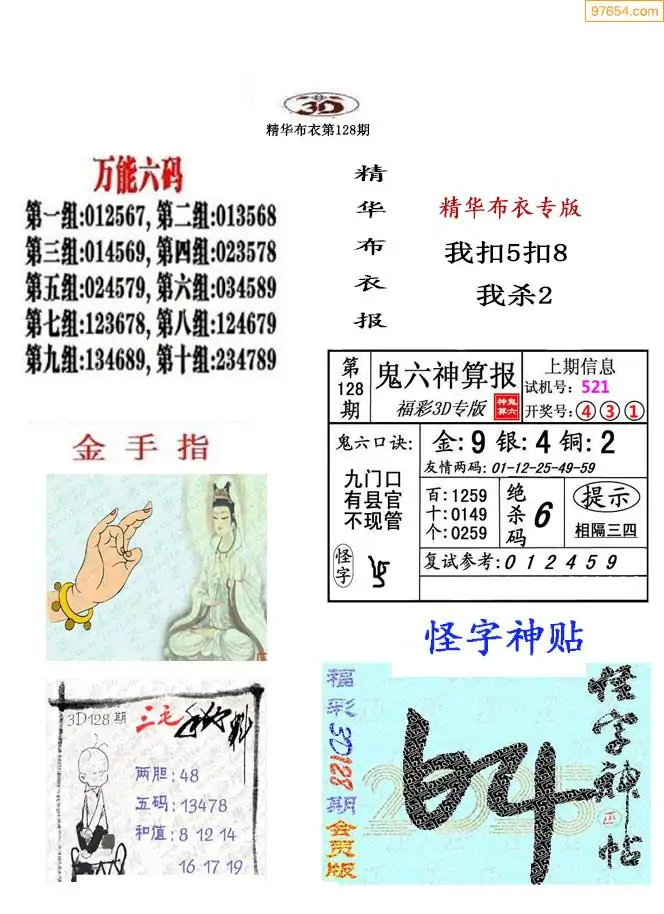 97654.com
3D
精华布衣第128期
万能六码
第一组:012567, 第二组:013568
第三组:014569, 第四组:023578
第五组:024579, 第六组:034589
第七组:123678, 第八组:124679
第九组:134689, 第十组:234789
精华布衣报
精华布衣专版
我扣5扣8
我杀2
第128期
鬼六神算报
福彩3D专版
神鬼算六
上期信息
试机号: 521
开奖号: ④③①
鬼六口诀:
九门口
有县官
不现管
怪字
金:9 银:4 铜:2
友情两码: 01-12-25-49-59
百:1259
十:0149
个:0259
绝杀码 6
提示
相隔三四
复试参考: 0 1 2 4 5 9
金手指
3D128期
三毛
两胆: 48
五码: 13478
和值: 8 12 14
16 17 19
怪字神贴
福彩3D128期会员版
怪字神帖
2025